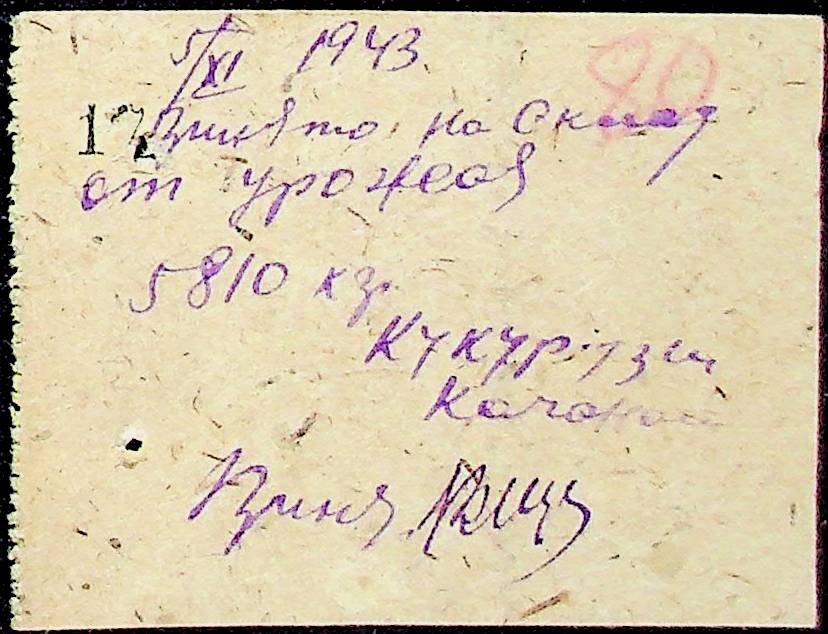 5/XI 1943
90
17 Принято на Склад
от урожая
5810 кг
Кукурузи
Качаном
Приня